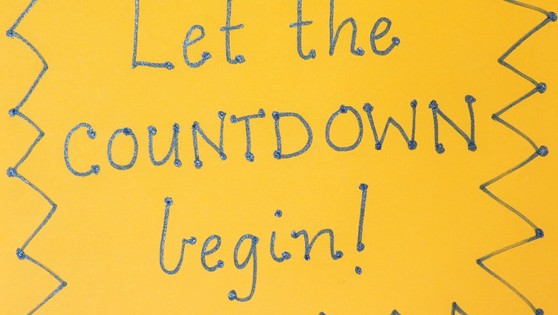 Let the
COUNTDOWN
begin!